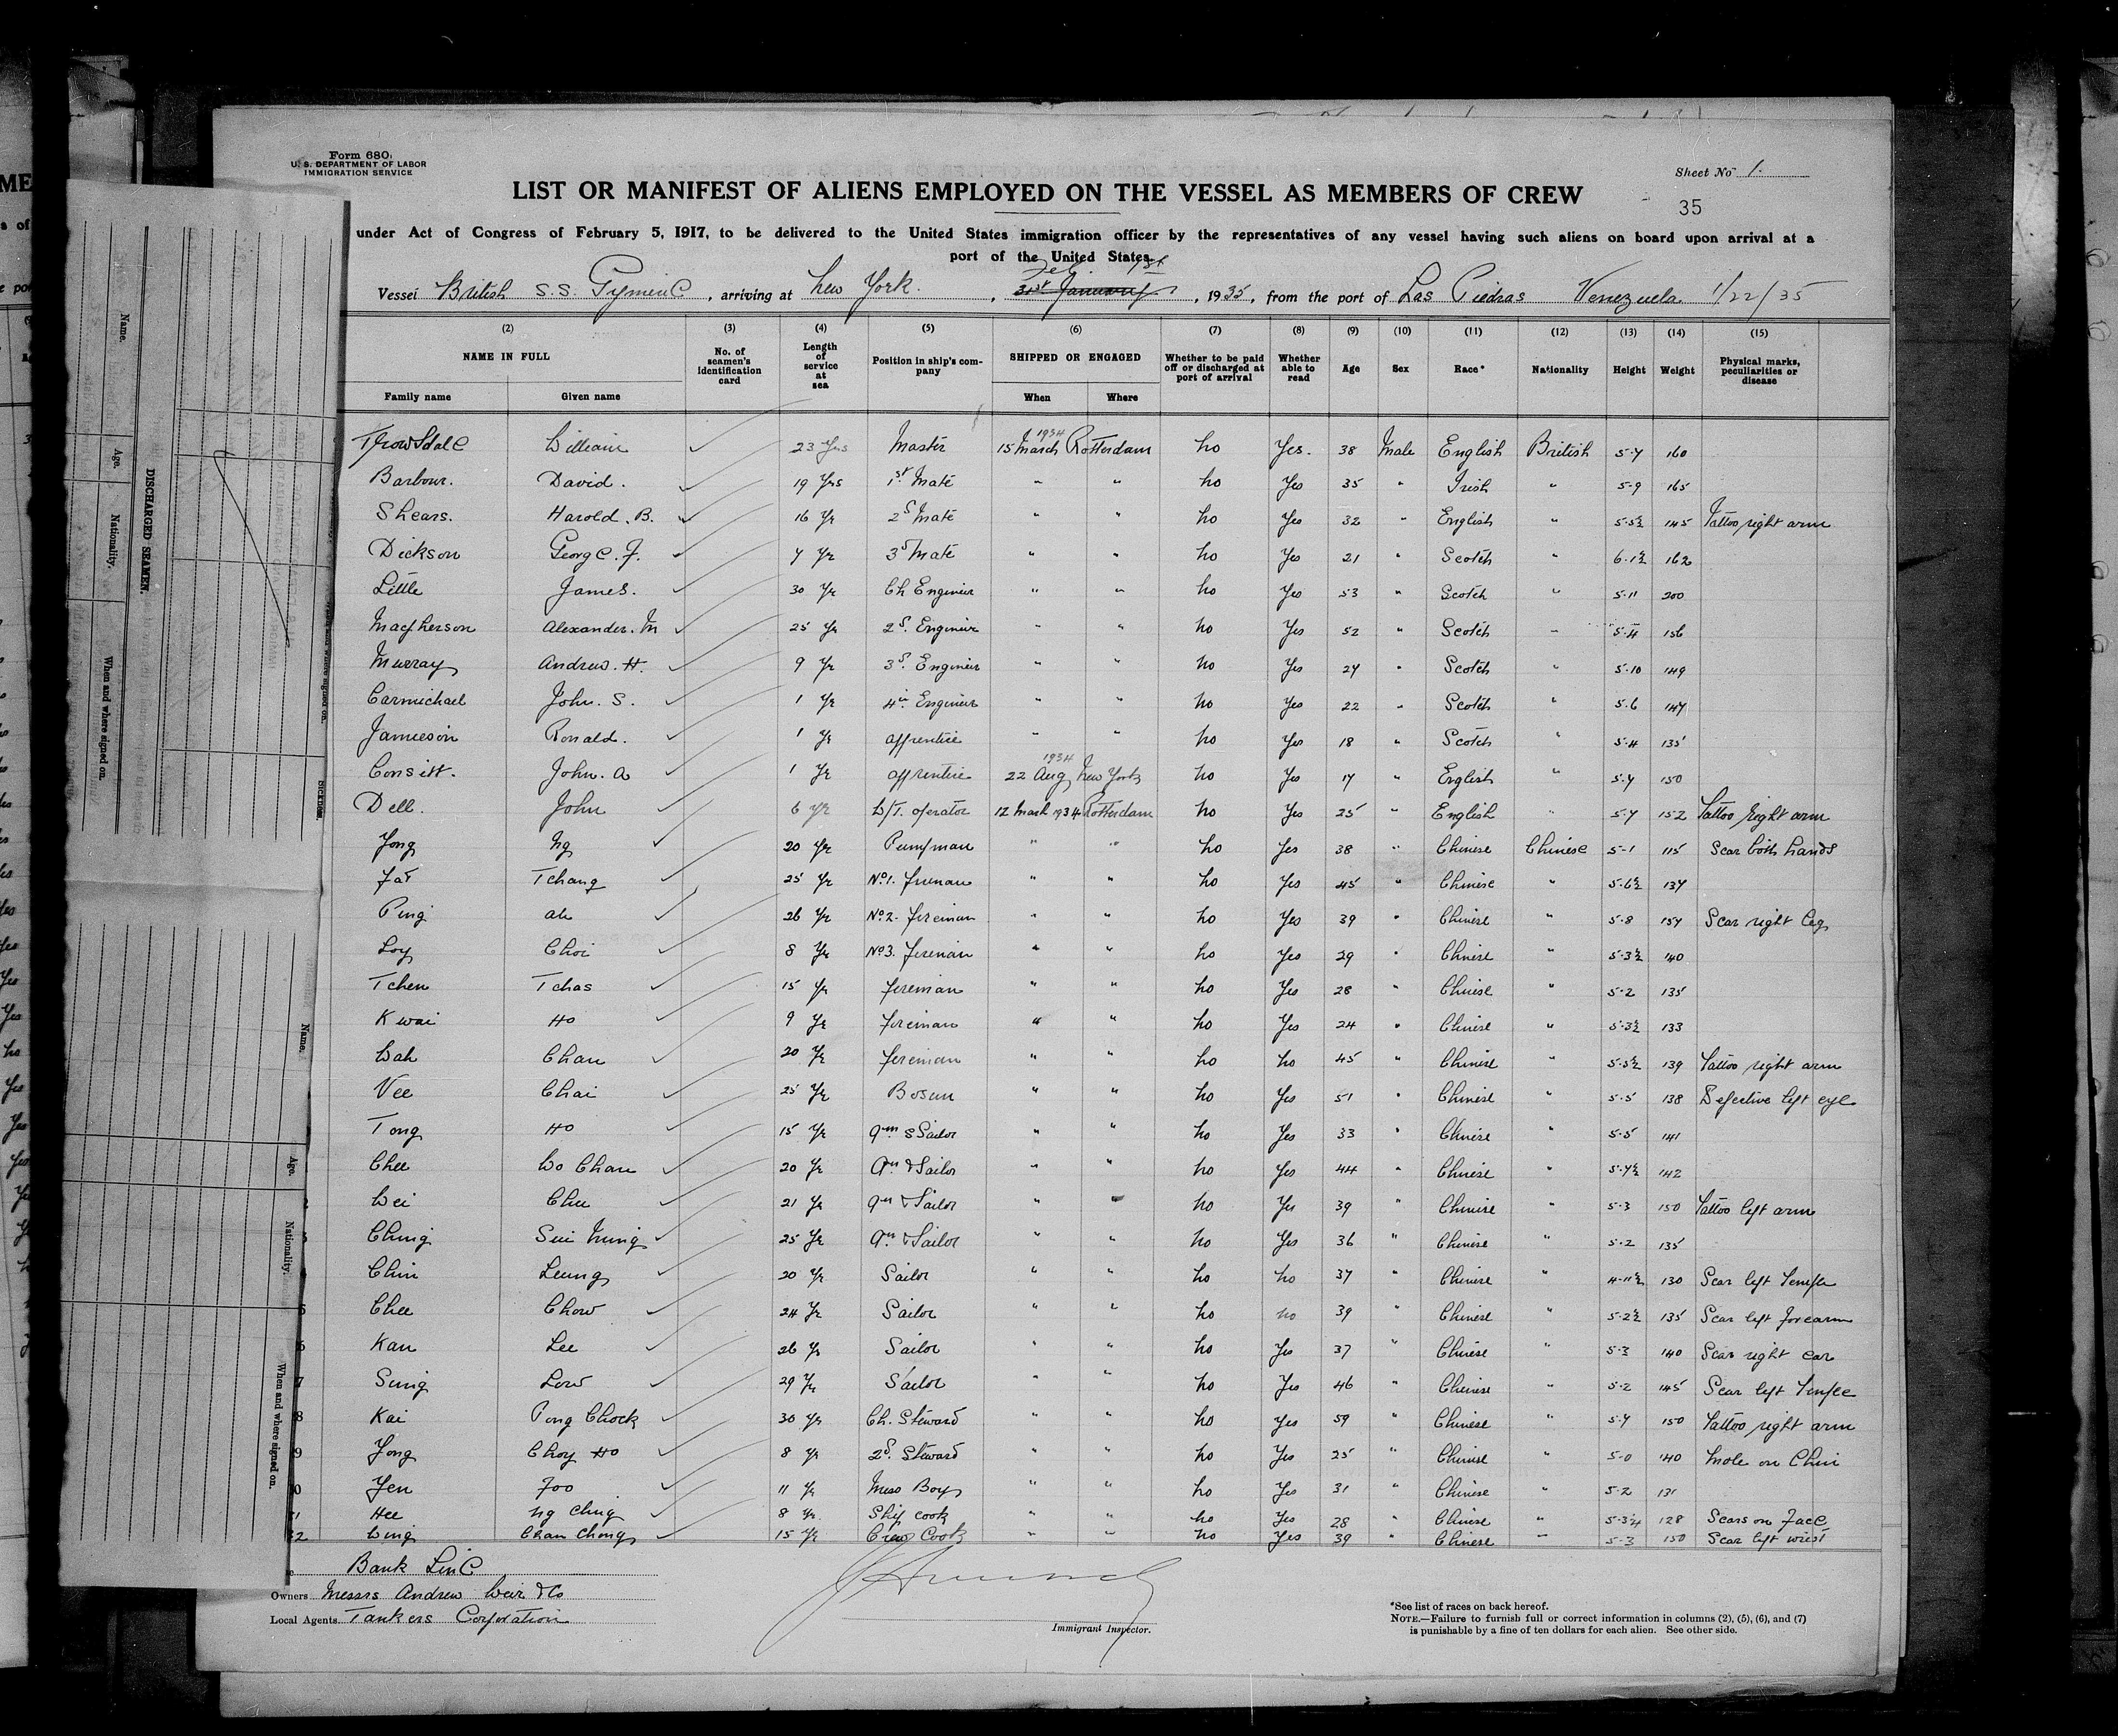 Form 680
U. S. DEPARTMENT OF LABOR
IMMIGRATION SERVICE
Sheet No 1.
LIST OR MANIFEST OF ALIENS EMPLOYED ON THE VESSEL AS MEMBERS OF CREW
35
under Act of Congress of February 5, 1917, to be delivered to the United States immigration officer by the representatives of any vessel having such aliens on board upon arrival at a
port of the United States
Feb 1st
Vessel British S.S. , arriving at New York. , 31st January , 1935, from the port of Las Piedras Venezuela 1/22/35
(2) (3) (4) (5) (6) (7) (8) (9) (10) (11) (12) (13) (14) (15)
NAME IN FULL No. of seamen's identification card Length of service at sea Position in ship's company SHIPPED OR ENGAGED Whether to be paid off or discharged at port of arrival Whether able to read Age Sex Race* Nationality Height Weight Physical marks, peculiarities or disease
Family name Given name When Where
Trowsdale William 23 Yrs Master 15 March 1934 Rotterdam No Yes. 38 Male English British 5-7 160
Barbour. David. 19 Yrs 1st Mate " " No Yes 35 " Irish " 5-9 165
Shears. Harold. B. 16 Yr 2d Mate " " No Yes 32 " English " 5-5½ 145 Tattoo right arm
Dickson George. F. 7 Yr 3d Mate " " No Yes 21 " Scotch " 6-1½ 162
Little James. 30 Yr Ch Engineer " " No Yes 53 " Scotch " 5-11 200
Macpherson Alexander. M 25 Yr 2d. Engineer " " No Yes 52 " Scotch " 5-4 156
Murray Andrew. H. 9 Yr 3d. Engineer " " No Yes 27 " Scotch " 5-10 149
Carmichael John. S. 1 Yr 4th Engineer " " No Yes 22 " Scotch " 5-6 147
Jamieson Ronald. 1 Yr apprentice " " No Yes 18 " Scotch " 5-4 135
Consitt. John. A 1 Yr apprentice 22 Aug 1934 New York No Yes 17 " English " 5-7 150
Dell. John 6 Yr W/T. operator 12 March 1934 Rotterdam No Yes 25 " English " 5-7 152 Tattoo right arm
Yong Ng 20 Yr Pumpman " " No Yes 38 " Chinese Chinese 5-1 115 Scar both hands
Fat Tchang 25 Yr No.1. fireman " " No Yes 45 " Chinese " 5-6½ 137
Ping Ah 26 Yr No.2. fireman " " No Yes 39 " Chinese " 5-8 157 Scar right leg
Loy Choi 8 Yr No.3. fireman " " No Yes 29 " Chinese " 5-3½ 140
Tchen Tchas 15 Yr fireman " " No Yes 28 " Chinese " 5-2 135
Kwai Ho 9 Yr fireman " " No Yes 24 " Chinese " 5-3½ 133
Wah Chan 20 Yr fireman " " No No 45 " Chinese " 5-5½ 139 Tattoo right arm
Vee Chai 25 Yr Bosun " " No Yes 51 " Chinese " 5-5 138 Defective left eye
Tong Ho 15 Yr Qm & Sailor " " No Yes 33 " Chinese " 5-5 141
Chee Wo Chan 20 Yr Qm & Sailor " " No Yes 44 " Chinese " 5-7½ 142
Wei Chu 21 Yr Qm & Sailor " " No Yes 39 " Chinese " 5-3 150 Tattoo left arm
Ching Sui Hung 25 Yr Qm & Sailor " " No Yes 36 " Chinese " 5-2 135
Chin Leung 20 Yr Sailor " " No No 37 " Chinese " 4-11½ 130 Scar left Temple
Chee Chow 24 Yr Sailor " " No No 39 " Chinese " 5-2½ 135 Scar left forearm
Kan Lee 26 Yr Sailor " " No Yes 37 " Chinese " 5-3 140 Scar right ear
Sung Low 29 Yr Sailor " " No Yes 46 " Chinese " 5-2 145 Scar left Temple
Kai Pong Chock 30 Yr Ch. Steward " " No Yes 59 " Chinese " 5-7 150 Tattoo right arm
Yong Choy Ho 8 Yr 2d. Steward " " No Yes 25 " Chinese " 5-0 140 Mole on Chin
Yen Foo 11 Yr Mess Boy " " No Yes 31 " Chinese " 5-2 131
Hee Ng Ching 8 Yr. Ship cook " " No Yes 28 " Chinese " 5-3¼ 128 Scars on Face
Wing Chan Chong 15 Yr Crew Cook " " No Yes 39 " Chinese " 5-3 150 Scar left wrist
Bank Line
Owners Messrs Andrew Weir & Co
Local Agents Tankers Corporation
Immigrant Inspector.
*See list of races on back hereof.
NOTE.—Failure to furnish full or correct information in columns (2), (5), (6), and (7)
is punishable by a fine of ten dollars for each alien. See other side.
DISCHARGED SEAMEN
Name.
Age.
Nationality.
When and where signed on.
Name.
Age.
Nationality.
When and where signed on.